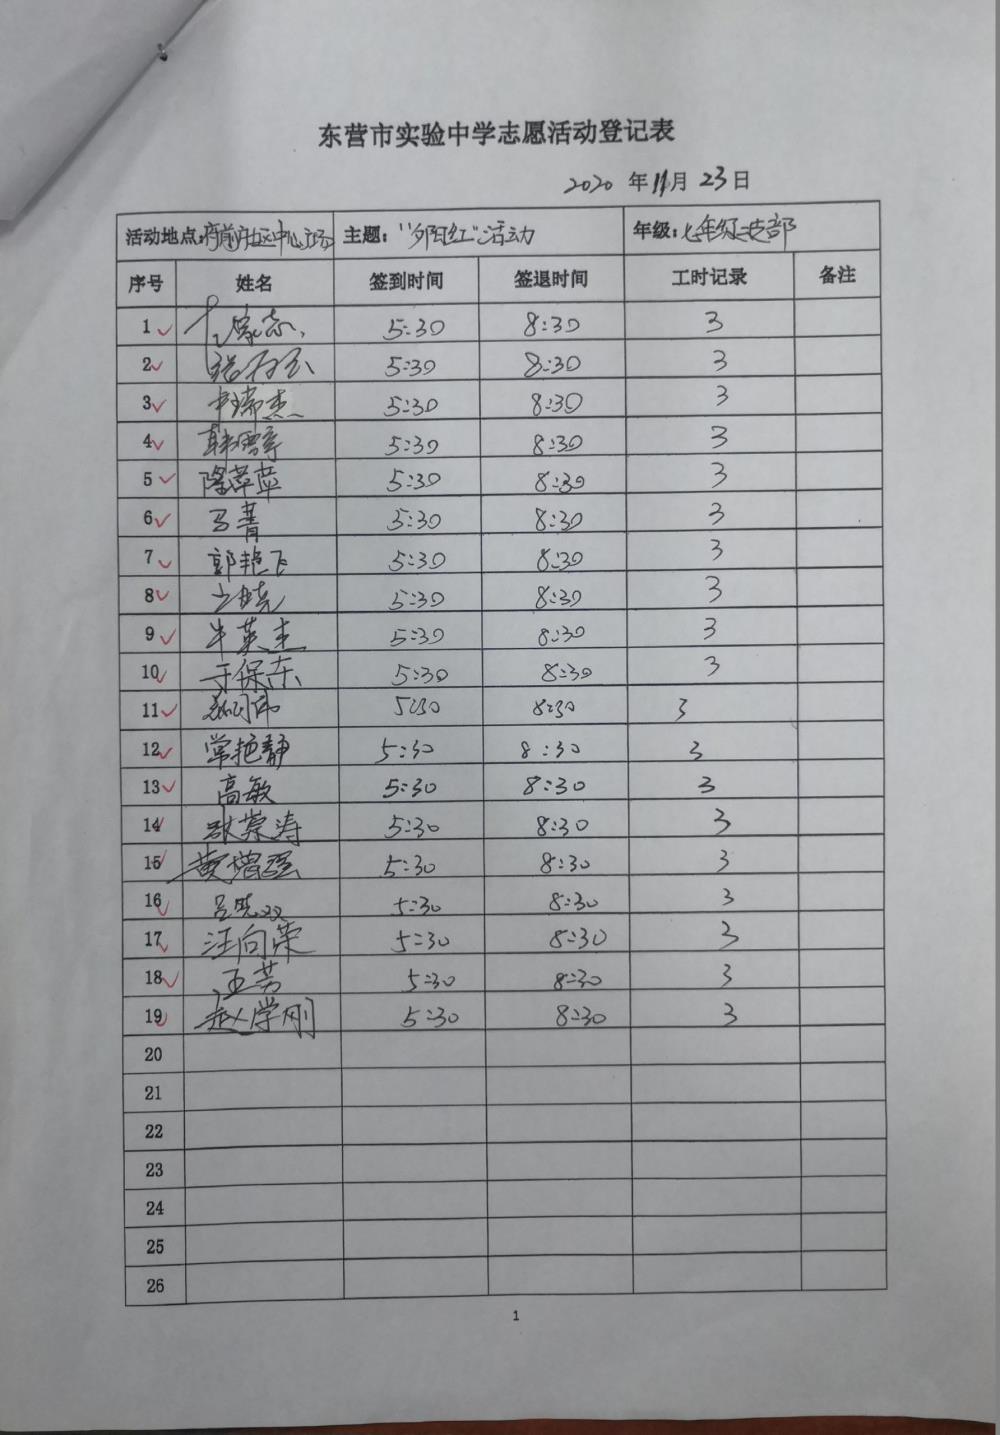 东营市实验中学志愿活动登记表
2020 年 11月 23日
活动地点:府前社区中心广场 主题:“夕阳红”活动 年级:七年级支部
序号 姓名 签到时间 签退时间 工时记录 备注
1 5:30 8:30 3
2 5:30 8:30 3
3 5:30 8:30 3
4 5:30 8:30 3
5 隆萍萍 5:30 8:30 3
6 马菁 5:30 8:30 3
7 郭艳飞 5:30 8:30 3
8 5:30 8:30 3
9 牛英杰 5:30 8:30 3
10 于保东 5:30 8:30 3
11 5:30 8:30 3
12 常艳静 5:30 8:30 3
13 高敏 5:30 8:30 3
14 张荣涛 5:30 8:30 3
15 黄增强 5:30 8:30 3
16 吕晓双 5:30 8:30 3
17 汪向荣 5:30 8:30 3
18 王芳 5:30 8:30 3
19 赵学刚 5:30 8:30 3
20
21
22
23
24
25
26
1